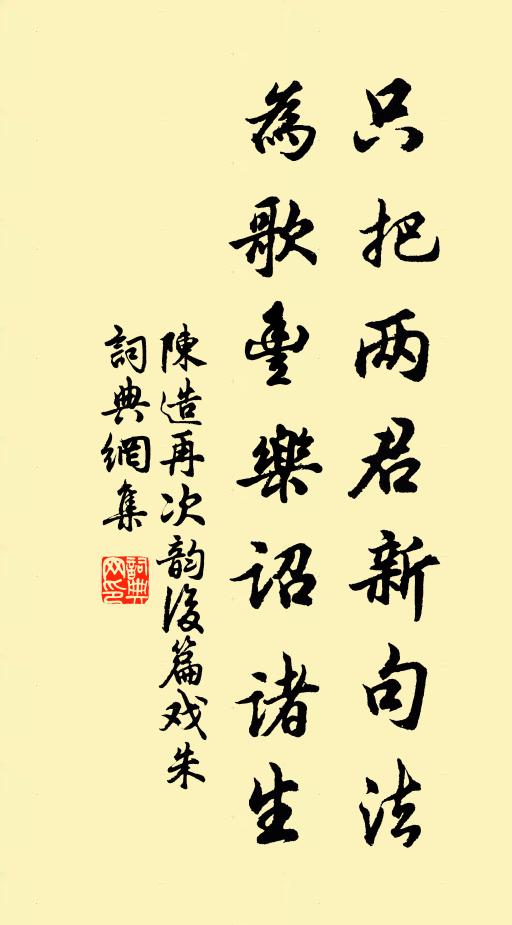 只把两君新句法
為歌豊樂詔諸生
陳造再次韵後篇戏朱
詞典網集
詞典网印